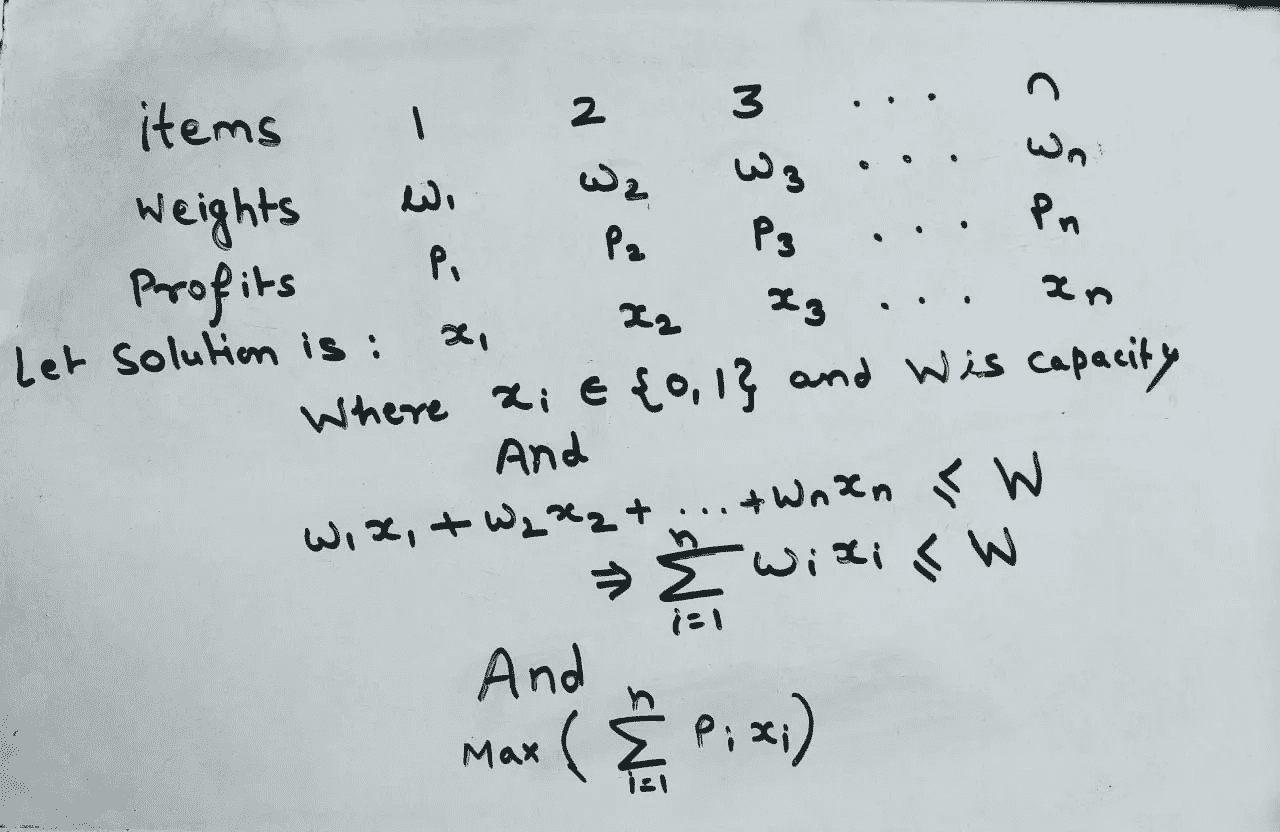 items 1 2 3 ... n
Weights w₁ w₂ w₃ ... wₙ
Profits P₁ P₂ P₃ ... Pₙ
Let Solution is : x₁ x₂ x₃ ... xₙ
Where xᵢ ∈ {0,1} and W is capacity
And
w₁x₁ + w₂x₂ + ... + wₙxₙ ⩽ W
⇒ n∑i=1 wᵢxᵢ ⩽ W
And
Max ( n∑i=1 Pᵢxᵢ)